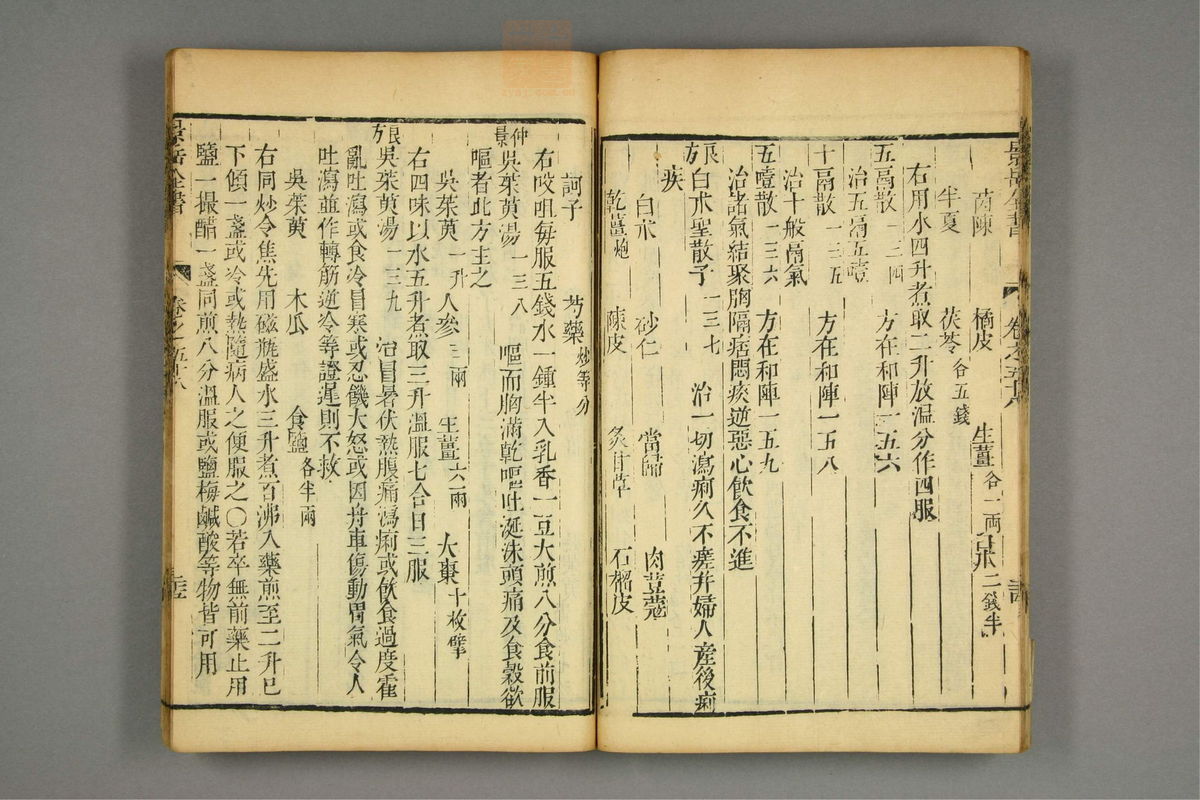 景岳全書 卷之五十八
茵陳 橘皮 生薑各一兩
半夏 茯苓各五錢
右用水四升煮取二升放溫分作四服
五膈散一三四 方在和陣一五六
治五膈五噎
十膈散一三五 方在和陣一五八
治十般膈氣
五噎散一三六 方在和陣一五九
治諸氣結聚胸隔痞悶痰逆惡心飲食不進
良方白朮聖散子一三七 治一切瀉痢久不瘥并婦人產後痢
疾
白朮 砂仁 當歸 肉荳蔻
乾薑炮 陳皮 炙甘草 石榴皮
訶子 芍藥炒等分
右㕮咀每服五錢水一鍾半入乳香一豆大煎八分食前服
仲景吳茱萸湯一三八 嘔而胸滿乾嘔吐涎沫頭痛及食穀欲
嘔者此方主之
吳茱萸一升 人參三兩 生薑六兩 大棗十枚擘
右四味以水五升煮取三升溫服七合日三服
良方吳茱萸湯一三九 治冒暑伏熱腹痛瀉痢或飲食過度霍
亂吐瀉或食冷冒寒或忍饑大怒或因舟車傷動胃氣令人
吐瀉並作轉筋逆冷等證遲則不救
吳茱萸 木瓜 食鹽各半兩
右同炒令焦先用磁瓶盛水三升煮百沸入藥煎至二升已
下傾一盞或冷或熱隨病人之便服之○若卒無前藥止用
鹽一撮醋一盞同煎八分溫服或鹽梅鹹酸等物皆可用
景岳全書 卷之五十八